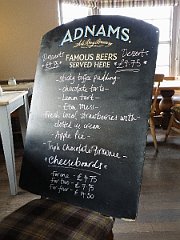 ADNAMS
FAMOUS BEERS
SERVED HERE
Desserts
Desserts
- sticky toffee pudding
- chocolate torte -
- Lemon tart -
- Eton mess -
- Fresh local strawberries with -
clotted ice cream
- Apple Pie -
- Triple Chocolate Brownie -
Cheeseboards
for one - £4.75
for two - £7.75
for four -